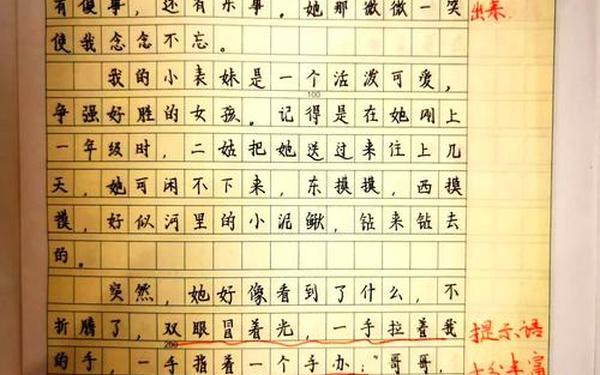 有傻事，还有乐事。她那微微一笑 出来
使我念念不忘。
我的小表妹是一个活泼可爱，
100
争强好胜的女孩。记得是在她刚上
一年级时，二姑把她送过来住上几
天，她可闲不下来，东摸摸，西摸
摸，好似河里的小泥鳅，钻来钻去
的。
突然，她好像看到了什么，不
折腾了，双眼冒着光，一手拉着我 提示语
200
的手，一手指着一个手办：“哥哥， 十分丰富